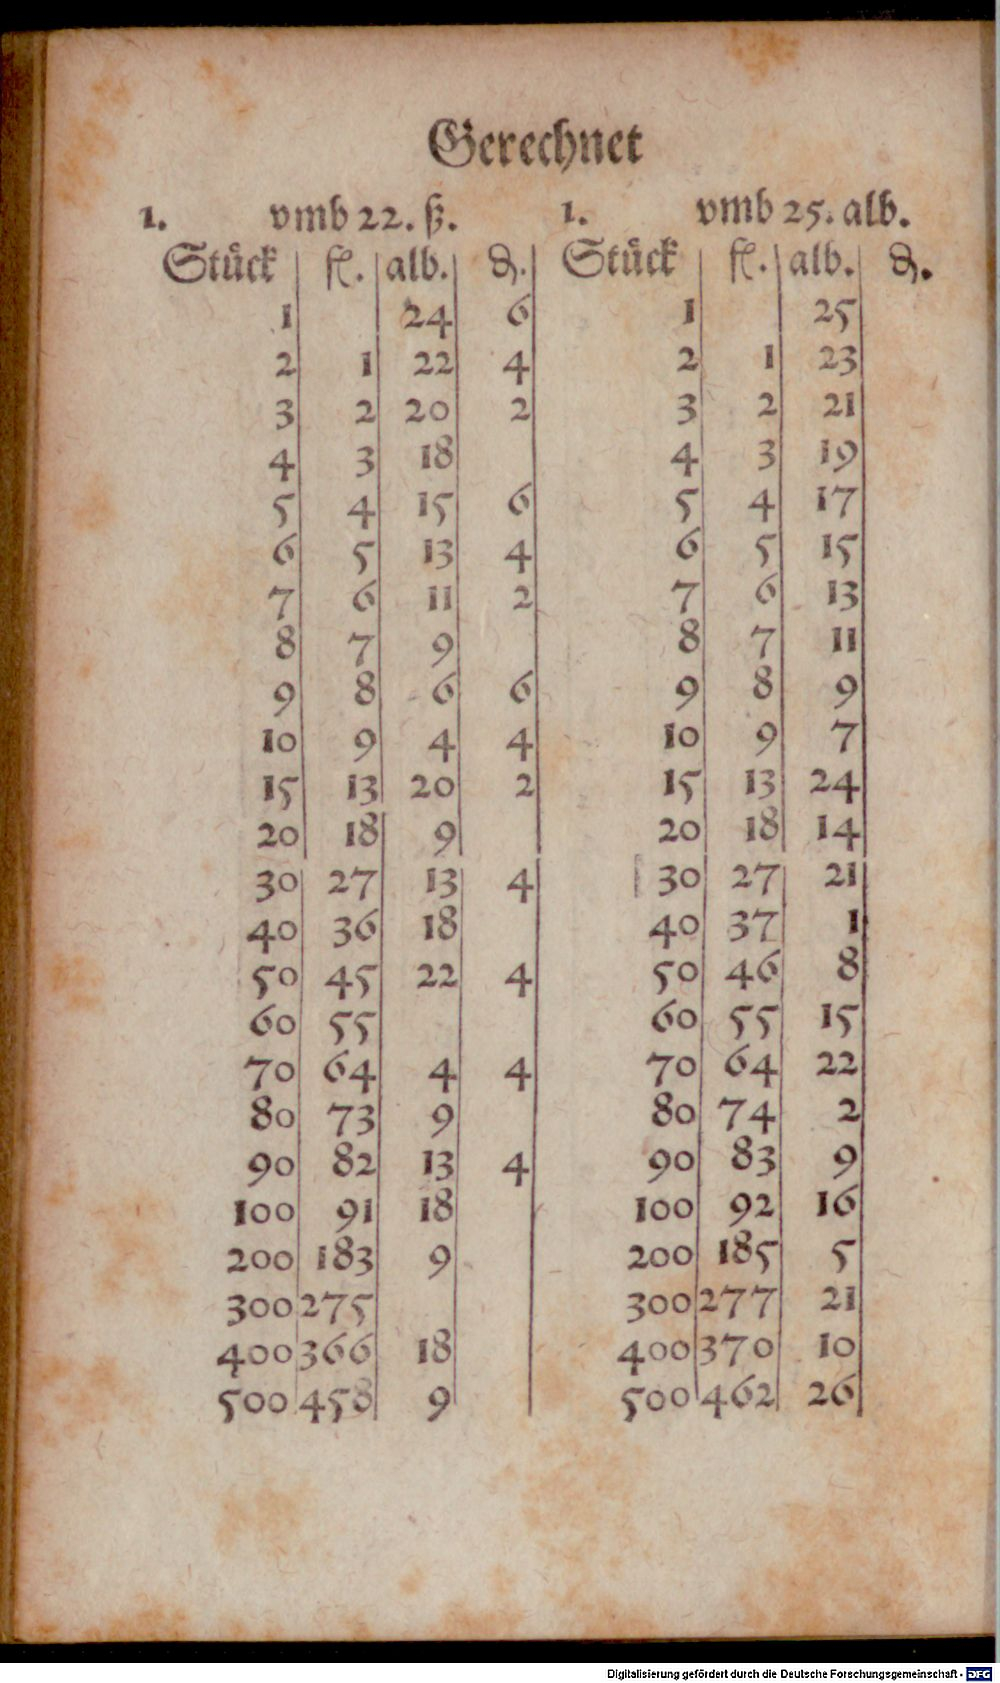 Gerechnet
1. vmb 22. ß.
Stück fl. alb. ₰.
1 24 6
2 1 22 4
3 2 20 2
4 3 18
5 4 15 6
6 5 13 4
7 6 11 2
8 7 9
9 8 6 6
10 9 4 4
15 13 20 2
20 18 9
30 27 13 4
40 36 18
50 45 22 4
60 55
70 64 4 4
80 73 9
90 82 13 4
100 91 18
200 183 9
300 275
400 366 18
500 458 9
1. vmb 25. alb.
Stück fl. alb. ₰.
1 25
2 1 23
3 2 21
4 3 19
5 4 17
6 5 15
7 6 13
8 7 11
9 8 9
10 9 7
15 13 24
20 18 14
30 27 21
40 37 1
50 46 8
60 55 15
70 64 22
80 74 2
90 83 9
100 92 16
200 185 5
300 277 21
400 370 10
500 462 26
Digitalisierung gefördert durch die Deutsche Forschungsgemeinschaft - DFG